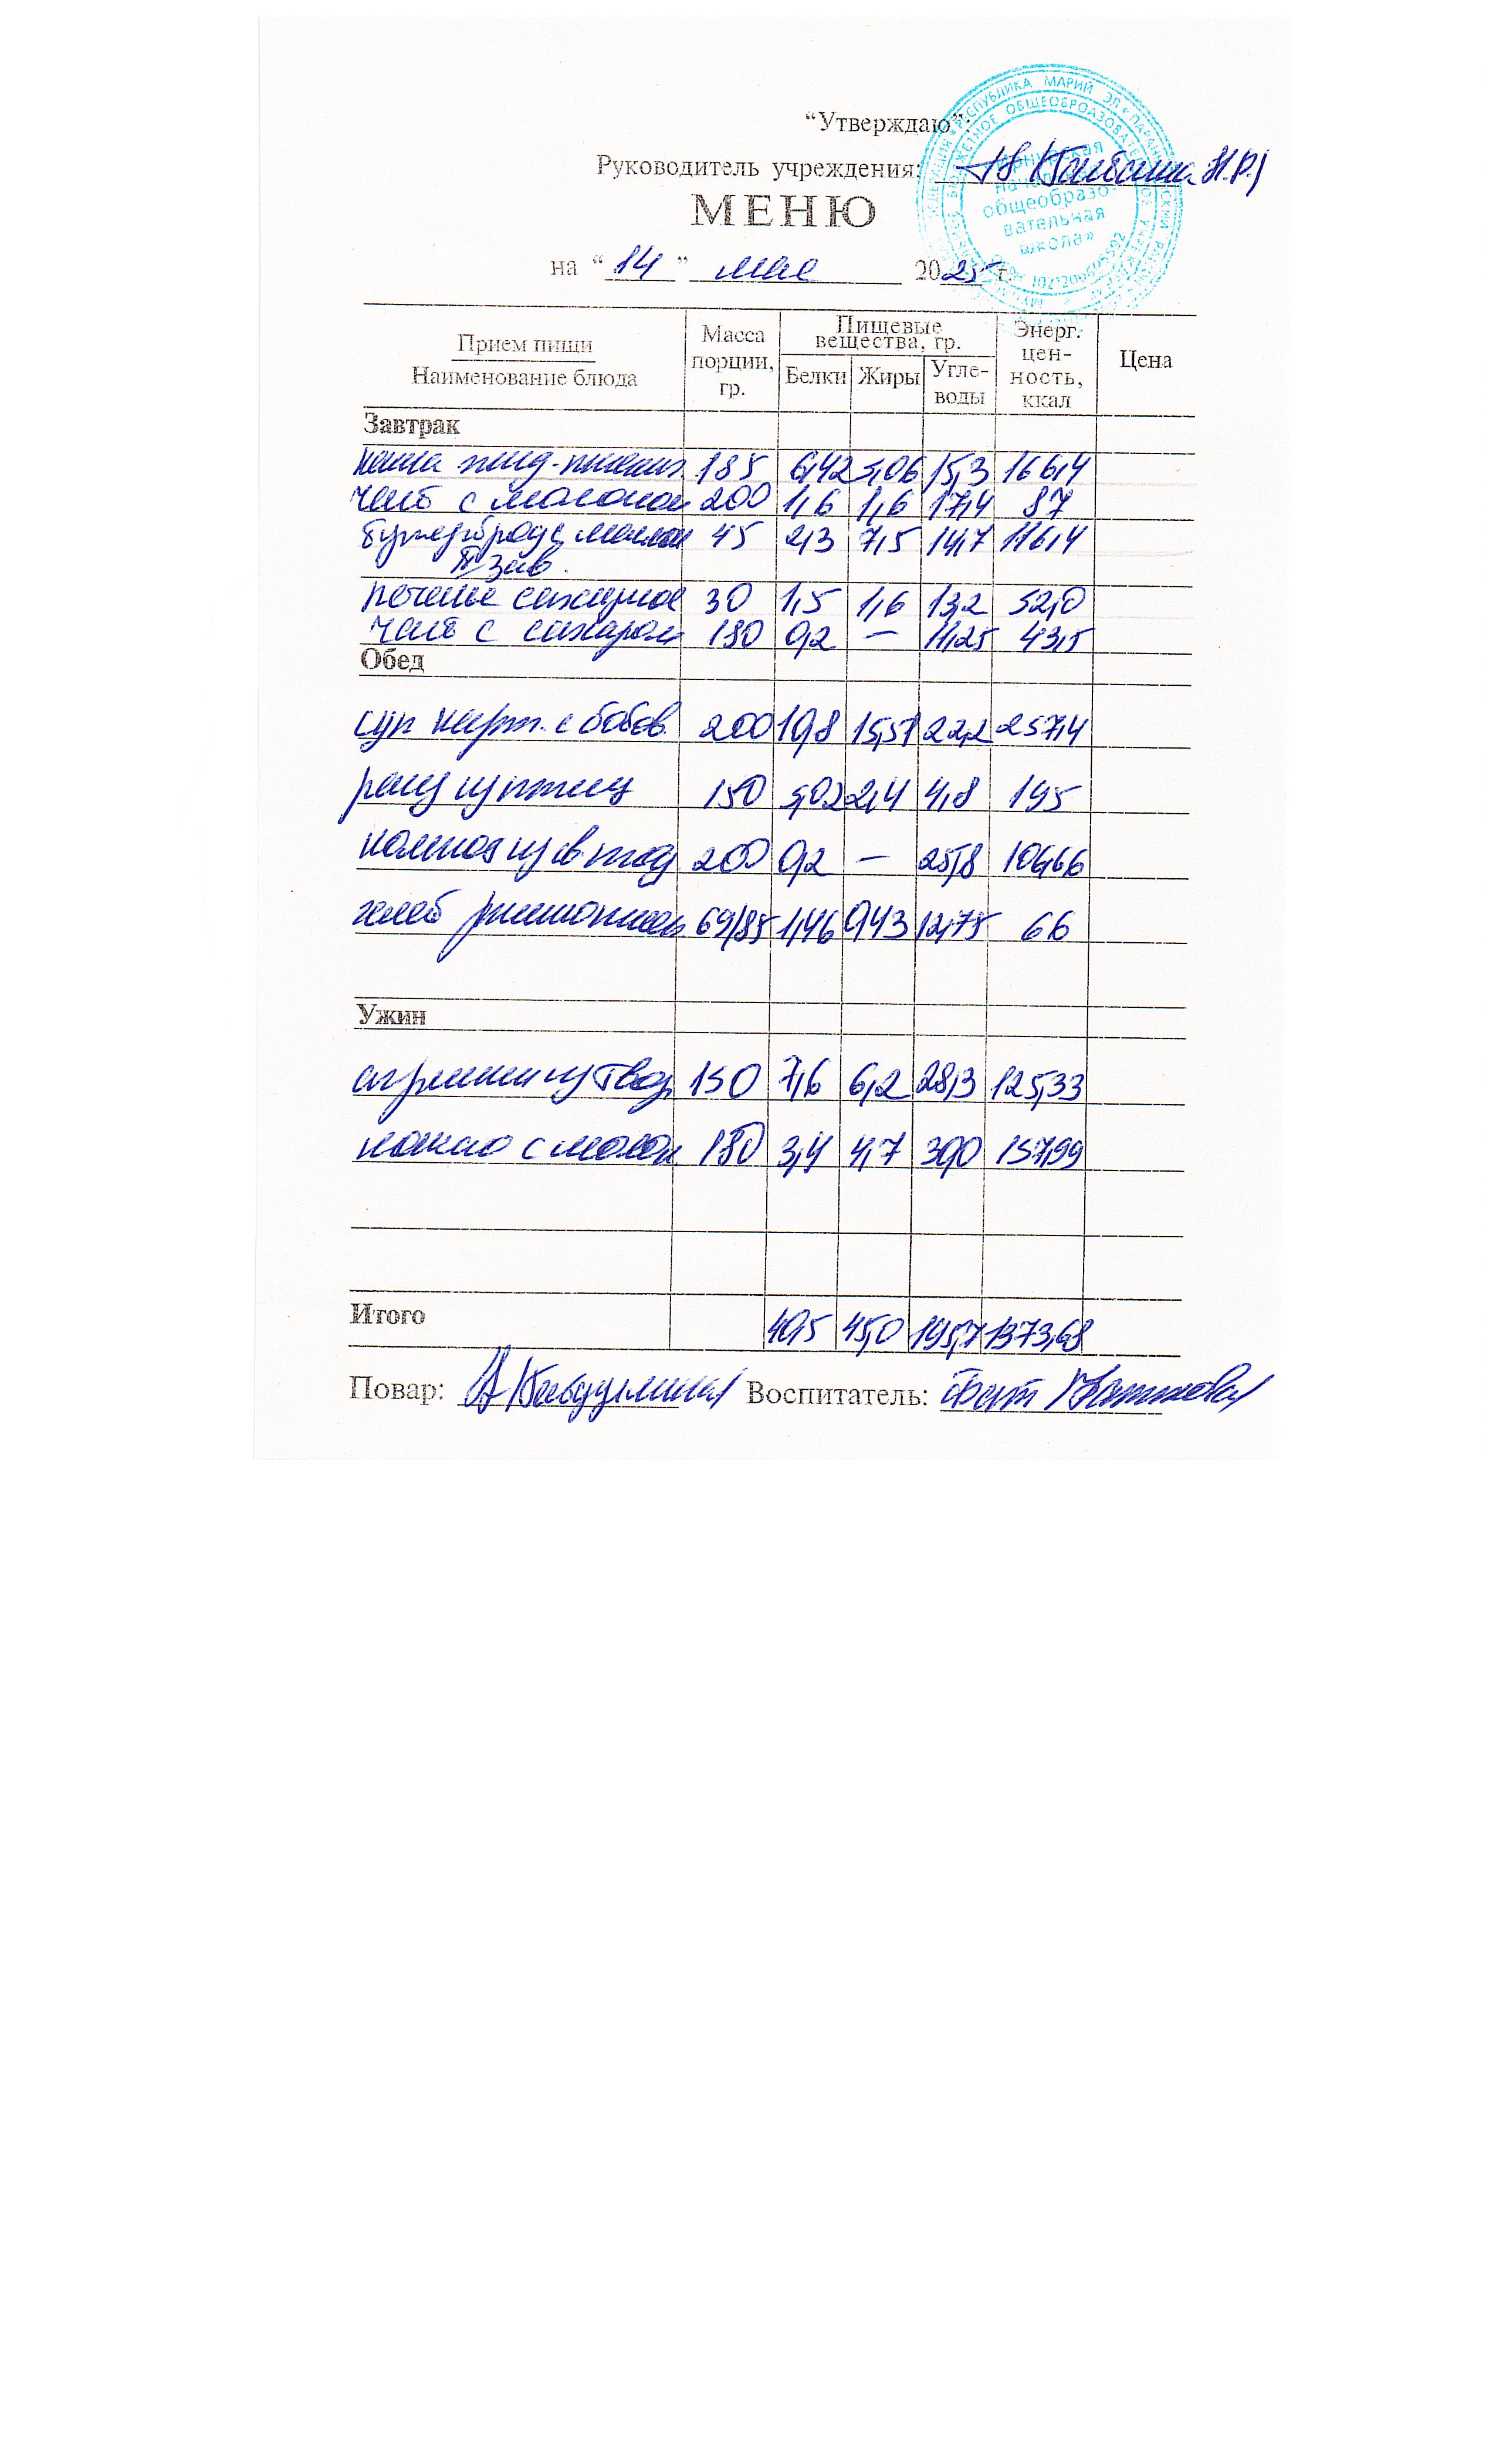 “Утверждаю”:
Руководитель учреждения:
МЕНЮ
на “14” мая 2025 г.
Прием пищи
Наименование блюда
Масса порции, гр.
Пищевые вещества, гр.
Белки
Жиры
Угле-
воды
Энерг. цен-
ность, ккал
Цена
Завтрак
каша 185 6,42 5,06 15,3 166,4
чай с молоком 200 1,6 1,6 17,4 87
бутерброд с маслом 45 2,3 7,5 14,7 116,4
II зав.
печенье сахарное 30 1,5 1,6 13,2 52,0
чай с сахаром 180 0,2 — 11,25 43,5
Обед
суп карт. с бобов. 200 10,8 15,51 22,2 257,4
рагу из птицы 150 5,02 2,4 4,8 195
компот из 200 0,2 — 25,8 106,66
хлеб 69/85 1,46 0,43 12,75 66
Ужин
150 7,6 6,2 28,3 125,33
какао с молок. 180 3,4 4,7 30,0 157,99
Итого 40,5 45,0 195,7 1373,68
Повар: Воспитатель:
РЕСПУБЛИКА МАРИЙ ЭЛ
общеобразо-
вательная
школа»